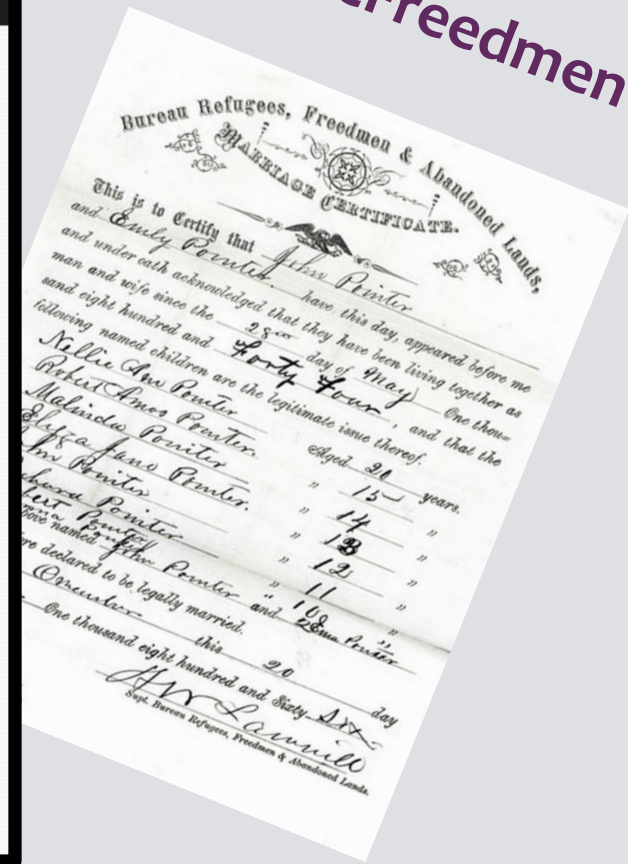 Freedmen
Bureau Refugees, Freedmen & Abandoned Lands,
MARRIAGE CERTIFICATE.
This is to Certify that John Pointer
and Emily Pointer. have this day, appeared before me
and under oath acknowledged that they have been living together as
man and wife since the 28 day of May One thou-
sand eight hundred and Forty Four, and that the
following named children are the legitimate issue thereof.
Nellie Ann Pointer Aged 20 years.
Robert Amos Pointer. " 15 "
Malinda Pointer " 14 "
Eliza Jane Pointer. " 13 "
Pointer " 12 "
Pointer " 11 "
Pointer " 10 "
named John Pointer and Pointer
re declared to be legally married.
this 20 day
One thousand eight hundred and Sixty Six
Supt. Bureau Refugees, Freedmen & Abandoned Lands.